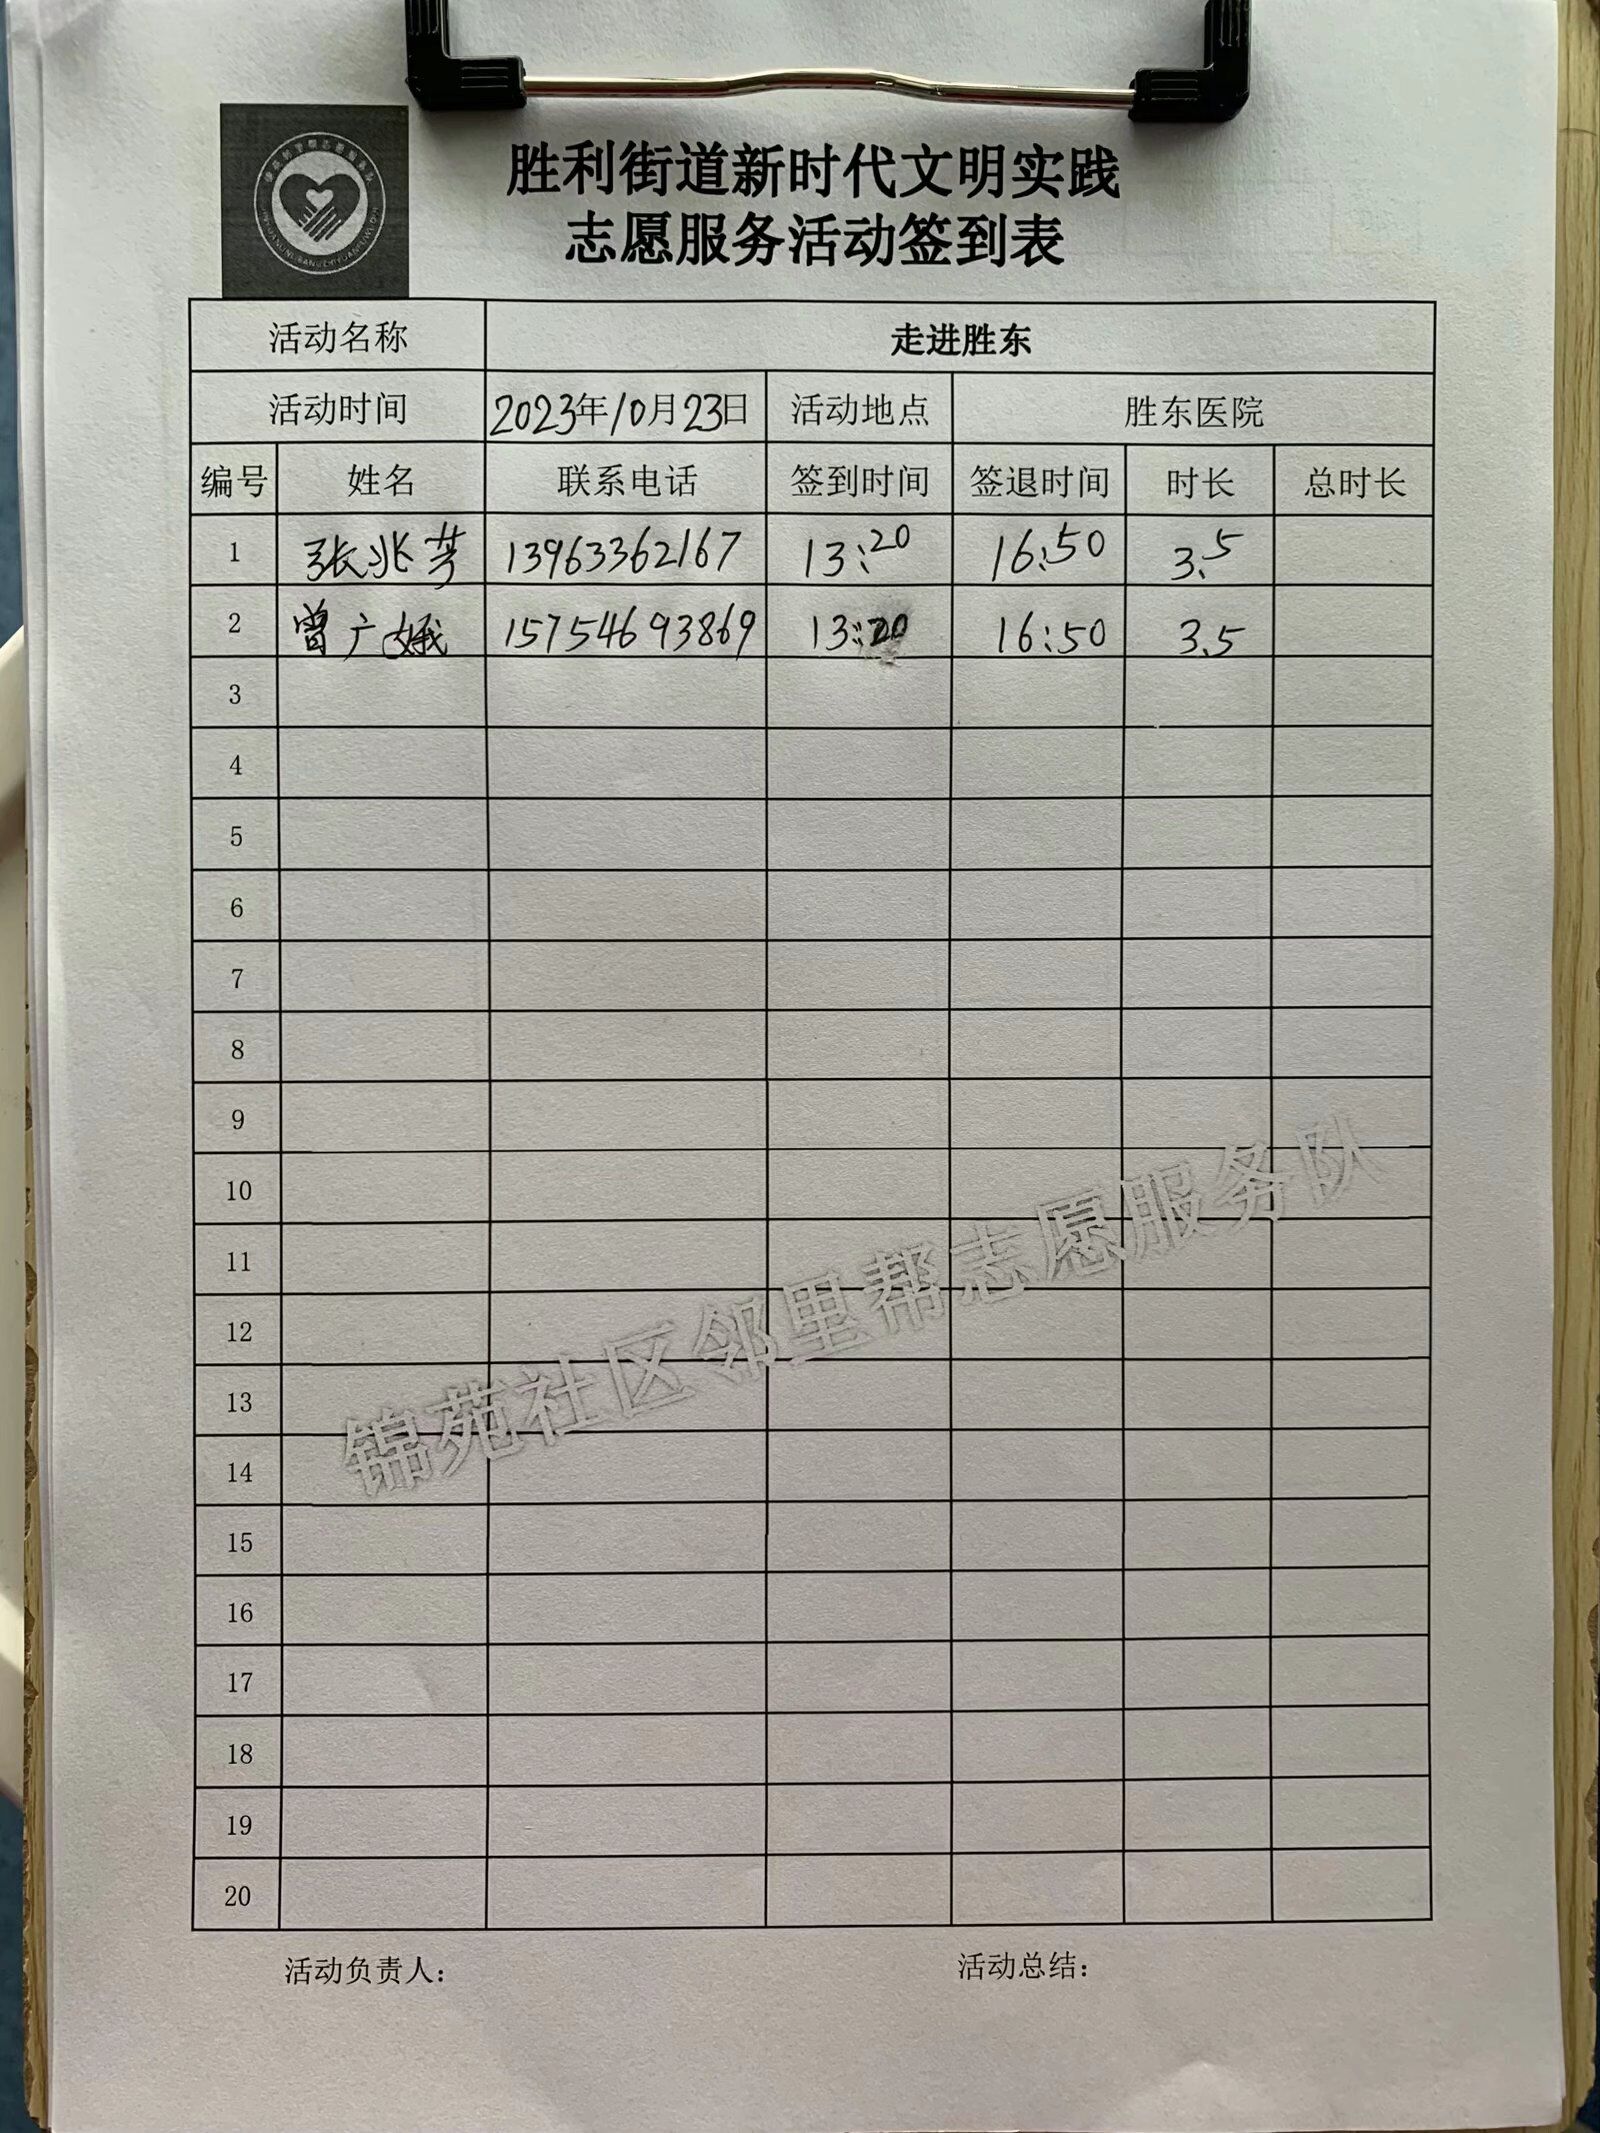 胜利街道新时代文明实践
志愿服务活动签到表
活动名称 走进胜东
活动时间 2023年10月23日 活动地点 胜东医院
编号 姓名 联系电话 签到时间 签退时间 时长 总时长
1 张兆芳 13963362167 13:20 16:50 3.5
2 曾广娥 15754693869 13:20 16:50 3.5
3
4
5
6
7
8
9
10
11
12
13
14
15
16
17
18
19
20
锦苑社区邻里帮志愿服务队
活动负责人： 活动总结：